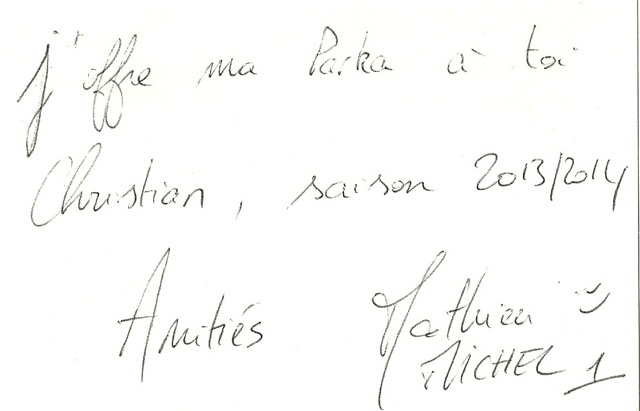 j'offre ma Parka à toi
Christian, saison 2013/2014
Amitiés Mathieu
MICHEL 1